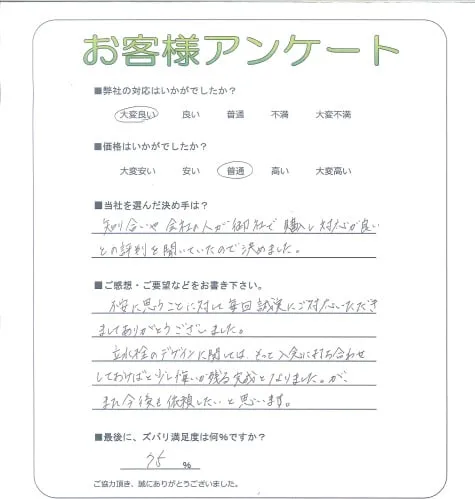 お客様アンケート
■弊社の対応はいかがでしたか？
大変良い 良い 普通 不満 大変不満
■価格はいかがでしたか？
大変安い 安い 普通 高い 大変高い
■当社を選んだ決め手は？
知り合いや会社の人が御社で購入し対応が良い
との評判を聞いていたので決めました。
■ご感想・ご要望などをお書き下さい。
不安に思うことに対して毎回誠実にご対応いただき
ましてありがとうございました。
立水栓のデザインに関しては、もっと入念に打ち合わせ
しておけばと少し悔いが残る完成となりました。が、
また今後も依頼したいと思います。
■最後に、ズバリ満足度は何％ですか？
75 ％
ご協力頂き、誠にありがとうございました。